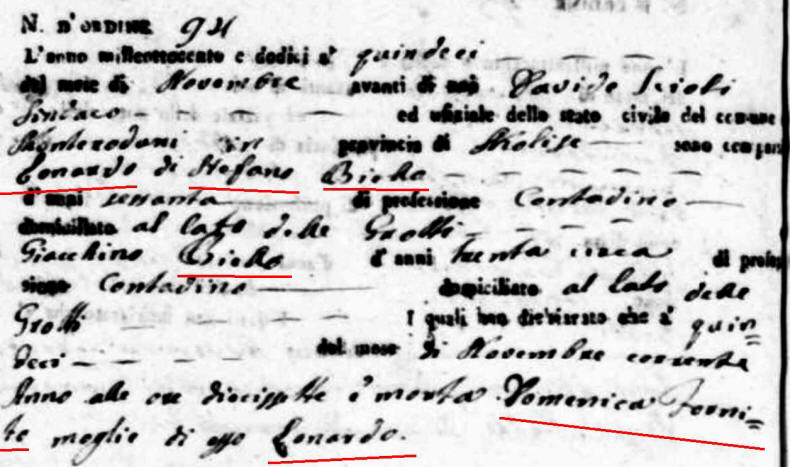 N. D'ORDINE 94
L'anno milleottocento e dodici a' quindeci
del mese di Novembre avanti di noi Davide Scioli
Sindaco ed ufiziale dello stato civile del comune
Monterodoni in provincia di Molise sono compar
Lonardo di Stefano Biella
d'anni sessanta di professione Contadino
domiciliato al lato delle Grotti
Giacchino Biella d'anni trenta circa di profes
sione Contadino domiciliato al lato delle
Grotti I quali han dichiarato che a' quin=
deci del mese di Novembre corrente
Anno alle ore diecissette è morta Domenica Forni=
te moglie di esso Lonardo.